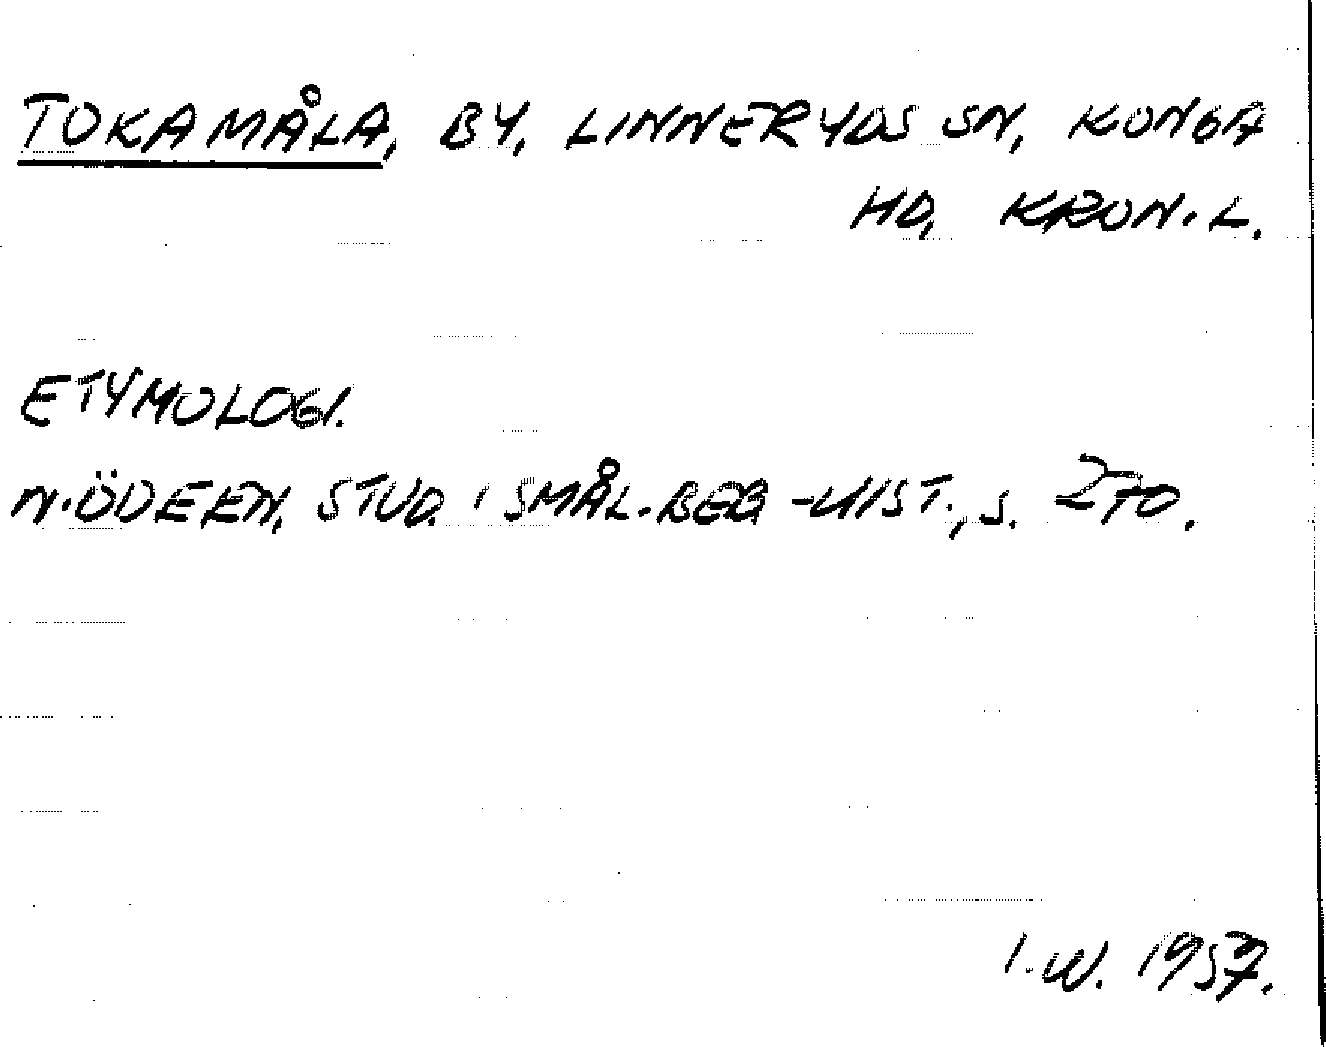 TOKAMÅLA, BY, LINNERYDS SN, KONGA
HD, KRON.L.
ETYMOLOGI.
N. ÖDEEN, STUD. I SMÅL. BEB-HIST., S. 270.
I.W. 1957.